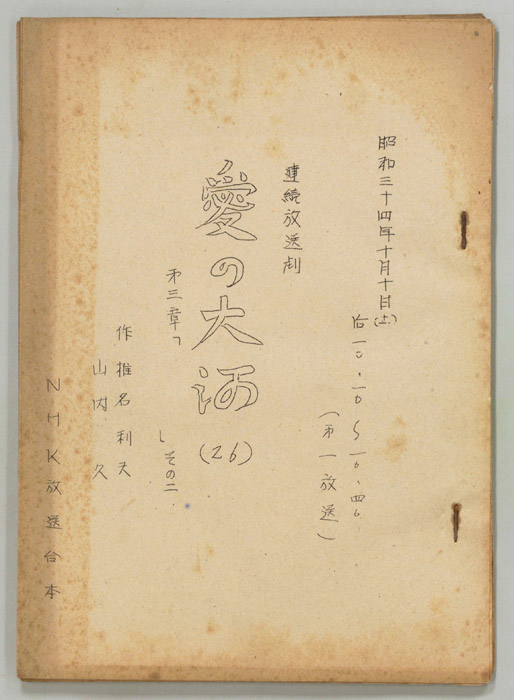 昭和三十四年十月十日(土)
后一〇・一〇〜一〇・四〇
(第一放送)
連続放送劇
愛の大河
(26)
第三章「
」その二
作 椎名利夫
山内久
NHK放送台本